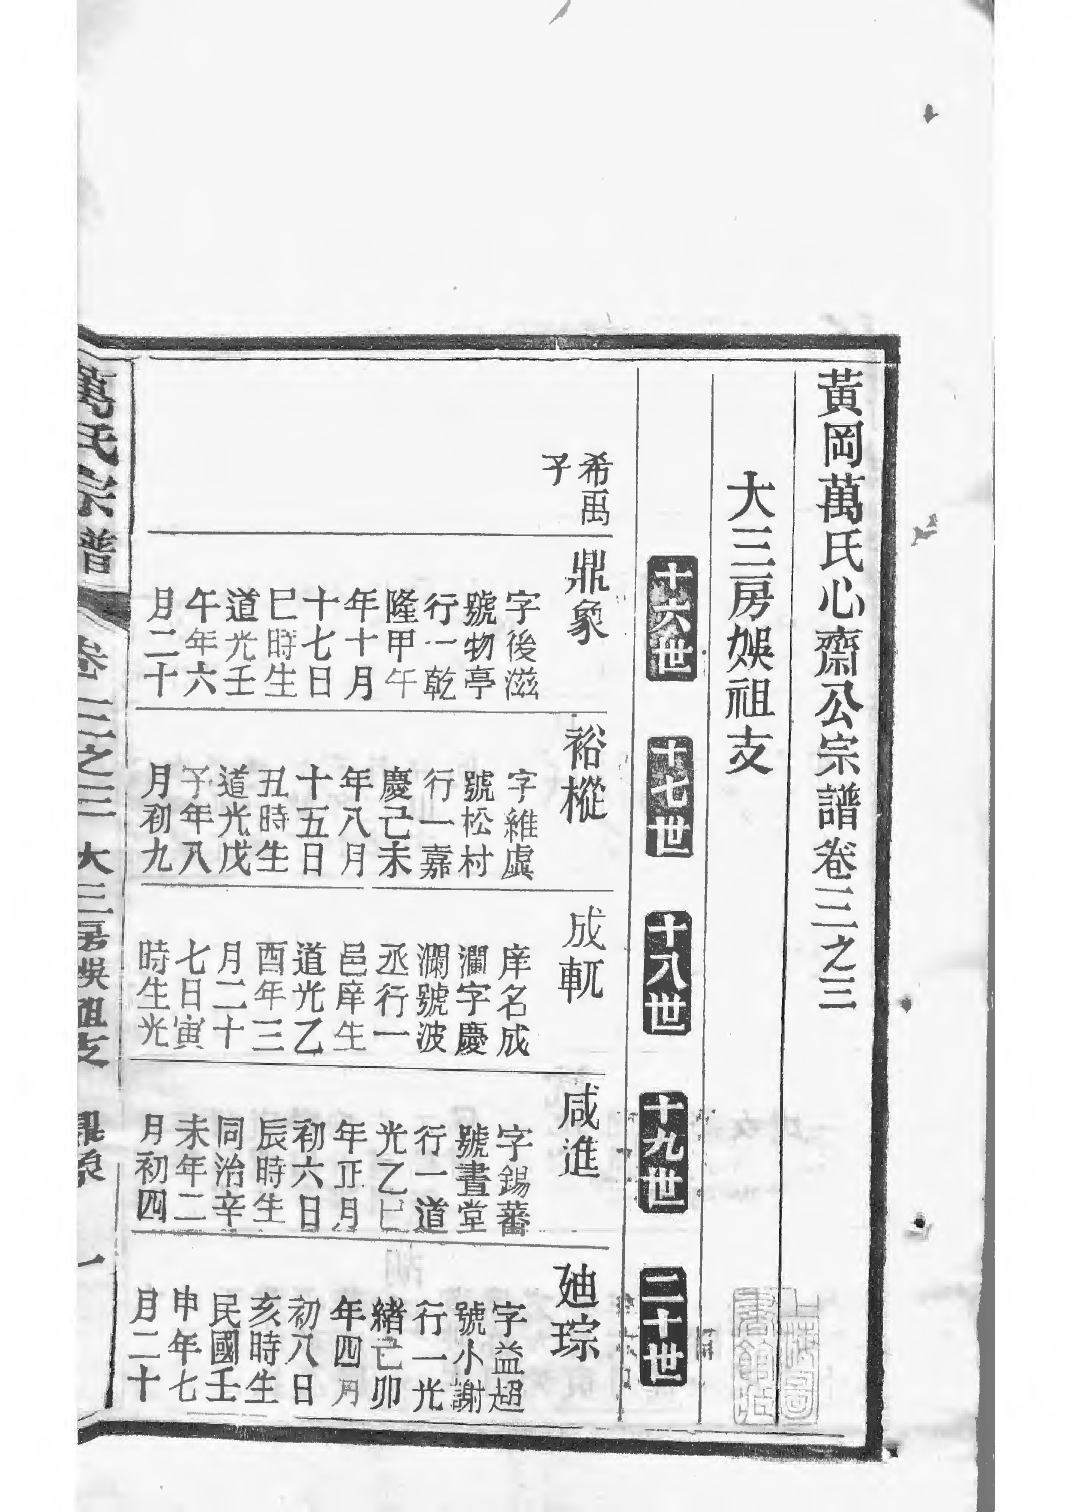 黃岡萬氏心齋公宗譜卷三之三
大三房娛祖支
十六世
十七世
十八世
十九世
二十世
希禹
子
鼎象
字後滋
號物亭
行一乾
隆甲午
年十月
十七日
巳時生
道光壬
午年六
月二十
裕樅
字維虞
號松村
行一嘉
慶己未
年八月
十五日
丑時生
道光戊
子年八
月初九
成軏
庠名成
瀾字慶
瀾號波
丞行一
邑庠生
道光乙
酉年三
月二十
七日寅
時生光
咸進
字錫蕃
號晝堂
行一道
光乙巳
年正月
初六日
辰時生
同治辛
未年二
月初四
廸琮
字益超
號小謝
行一光
緒己卯
年四月
初八日
亥時生
民國壬
申年七
月二十
萬氏宗譜
卷三之三
大三房娛祖支
鼎象
一
上海圖
書館藏